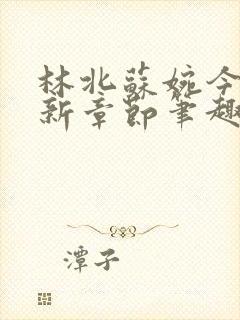 林北蘇婉今
新章節筆趣
潭子